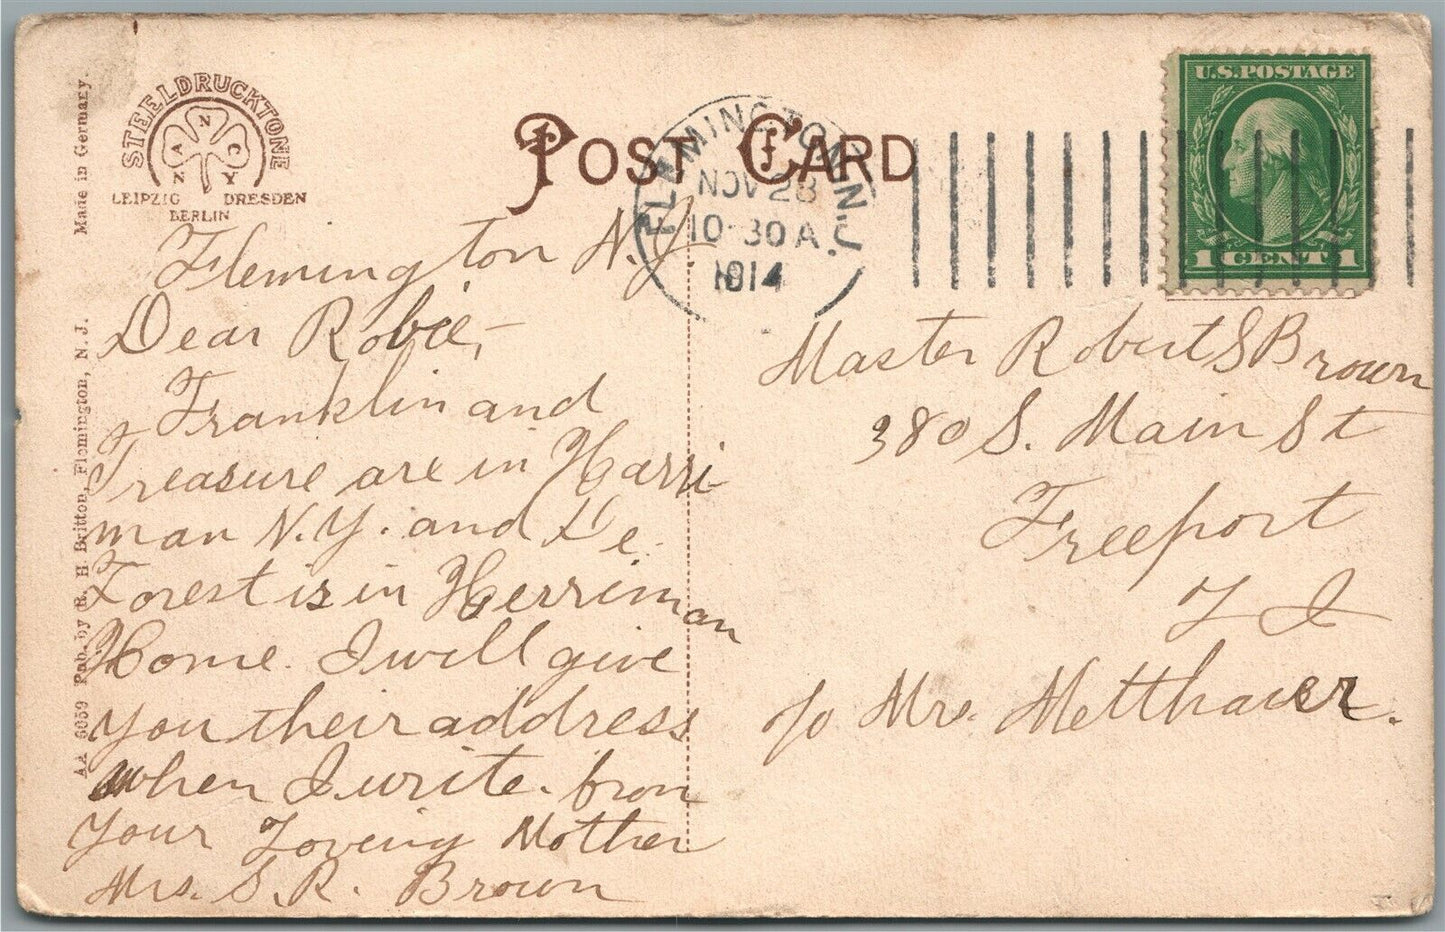 STEELDRUCKTONE
NANCY
LEIPZIG DRESDEN
BERLIN
Made in Germany.
AA 6059 Pub. by E. H. Britton, Flemington, N. J.
POST CARD
FLEMINGTON, N.J.
NOV 28
10-30 A
1914
U.S. POSTAGE
1 CENT 1
Flemington N.J.
Dear Robie,-
Franklin and
Treasure are in Harri
man N.Y. and De
Forest is in Herriman
Home. I will give
you their address
when I write. from
Your Loving Mother
Mrs. S. R. Brown
Master Robert S Brown
380 S. Main St
Freeport
L I
c/o Mrs. Metthauer.